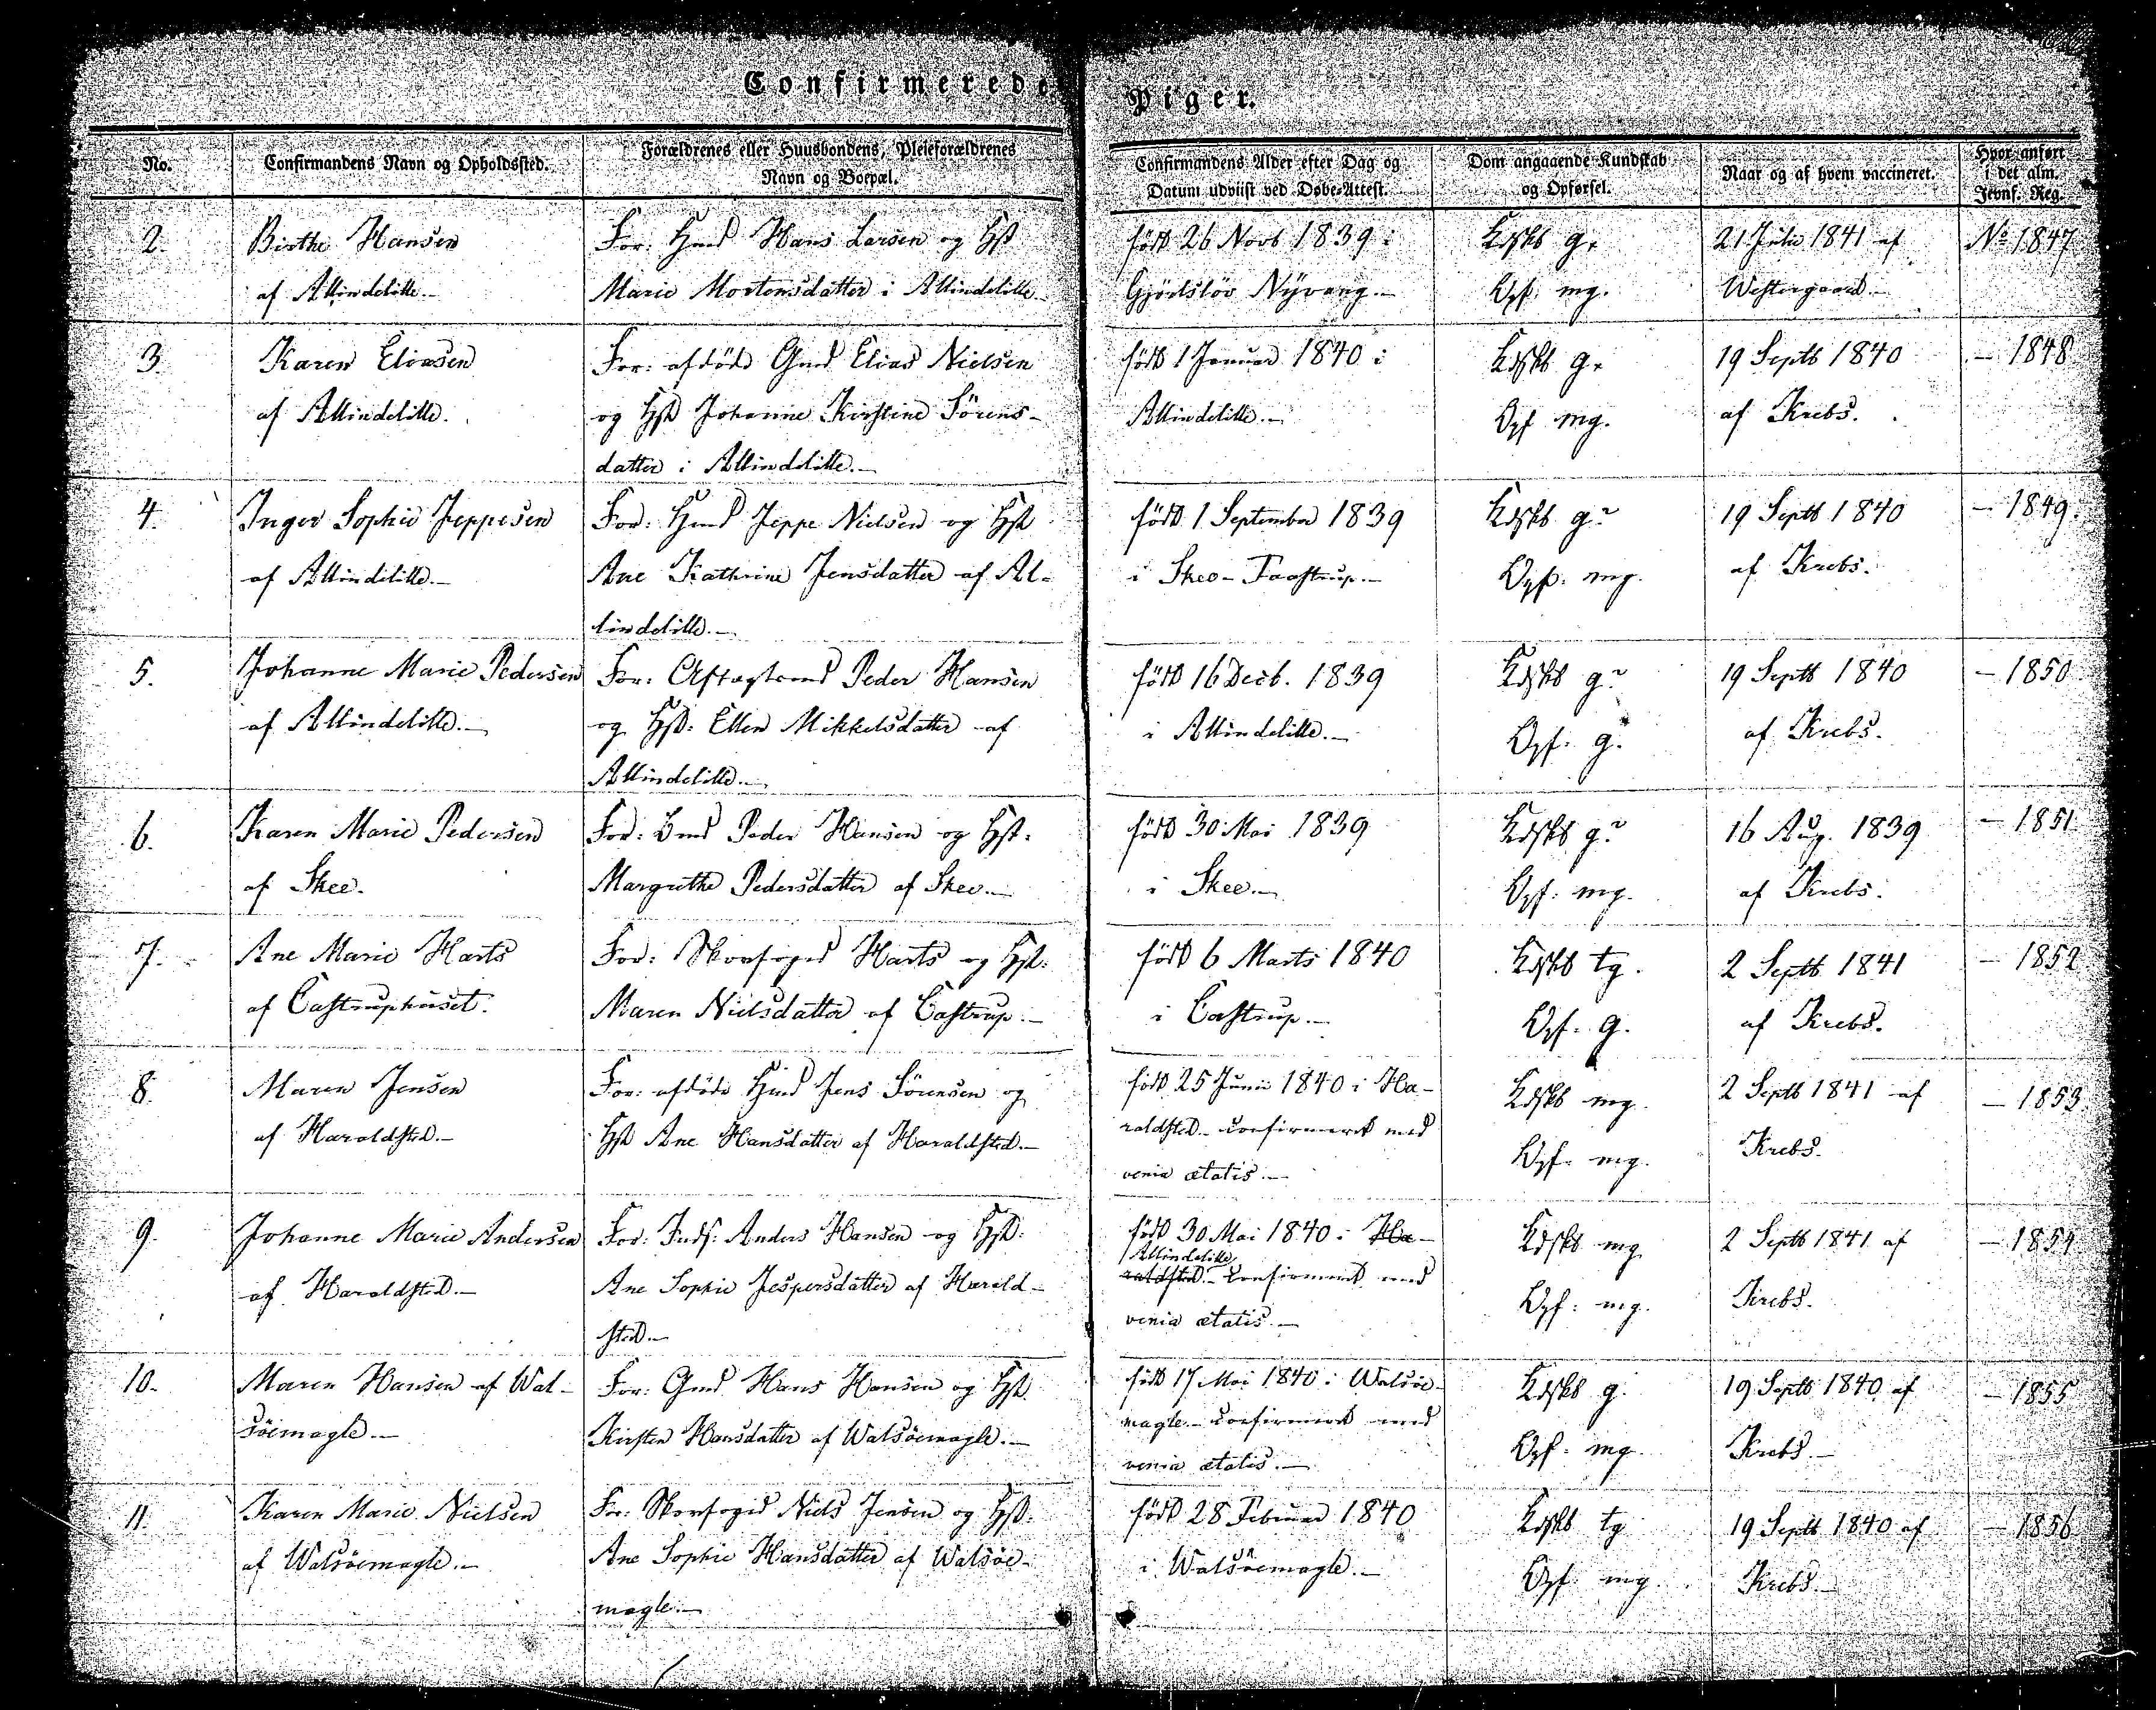 Confirmerede Piger.
No.
Confirmandens Navn og Opholdssted.
Forældrenes eller Huusbondens, Pleieforældrenes
Navn og Boepæl.
Confirmandens Alder efter Dag og
Datum udviist ved Døbe-Attest.
Dom angaaende Kundskab
og Opførsel.
Naar og af hvem vaccineret.
Hvor anført
i det alm.
Jevnf. Reg.
2.
Birthe Hansen
af Allindelille.-
For: Hmd Hans Larsen og Hst
Marie Mortensdatter i Allindelille
født 26 Novb 1839 i
Gjørlsløv Nyvang.-
Kdskb g.
Opf. mg.
21 Juli 1841 af
Westergaard.-
No 1847
3
Karen Eliasen
af Allindelille.
For: afdøde Gmd Elias Nielsen
og Hst Johanne Kirstine Sørens-
datter i Allindelille.-
født 1 Januar 1840 i
Allindelille.-
Kdskb g.
Opf mg.
19 Septb 1840
af Krebs.
- 1848
4.
Inger Sophie Jeppesen
af Allindelille.-
For: Hmd Jeppe Nielsen og Hst
Ane Kathrine Jensdatter af Al-
lindelille.-
født 1 September 1839
i Skee-Taastrup.-
Kdskb g?
Opf: mg.
19 Septb 1840
af Krebs.
- 1849.
5.
Johanne Marie Pedersen
af Allindelille.-
For: Aftægtsmd Peder Hansen
og Hst: Ellen Mikkelsdatter af
Allindelille.-
født 16 Decb. 1839
i Allindelille.-
Kdskb g?
Opf: g.
19 Septb 1840
af Krebs.
- 1850
6.
Karen Marie Pedersen
af Skee.
For: Bmd Peder Hansen og Hst:
Margrethe Pedersdatter af Skee.-
født 30 Mai 1839
i Skee.-
Kdskb g?
Opf: mg.
16 Aug. 1839
af Krebs.
- 1851
7.
Ane Marie Harts
af Castruphuset.
For: Skovfoged Harts og Hst:
Maren Nielsdatter af Castrup.-
født 6 Marts 1840
i Castrup.-
Kdskb tg.
Opf: g.
2 Septb 1841
af Krebs.
- 1852
8.
Maren Jensen
af Haraldsted.-
For: afdøde Hmd Jens Sørensen og
Hst Ane Hansdatter af Haraldsted.-
født 25 Junii 1840 i Ha-
raldsted.- Confirmeret med
venia ætatis.-
Kdskb mg.
Opf: mg.
2 Septb 1841 af
Krebs.
- 1853.
9.
Johanne Marie Andersen
af Haraldsted.-
For: Inds: Anders Hansen og Hst:
Ane Sophie Jespersdatter af Harald-
sted.-
født 30 Mai 1840 i Ha-
Allindelille
raldsted.- Confirmeret med
venia ætatis.-
Kdskb mg
Opf: mg.
2 Septb 1841 af
Krebs.
- 1854
10.
Maren Hansen af Wal-
søemagle.-
For: Gmd Hans Hansen og Hst.
Kirsten Hansdatter af Walsøemagle.-
født 17 Mai 1840 i Walsøe-
magle.- Confirmeret med
venia ætatis.-
Kdskb g.
Opf: mg.
19 Septb 1840 af
Krebs.-
- 1855
11.
Karen Marie Nielsen
af Walsøemagle.-
For: Skovfoged Niels Jensen og Hst:
Ane Sophie Hansdatter af Walsøe-
magle.-
født 28 Februar 1840
i Walsøemagle.-
Kdskb tg
Opf: mg.
19 Septb 1840 af
Krebs.-
- 1856